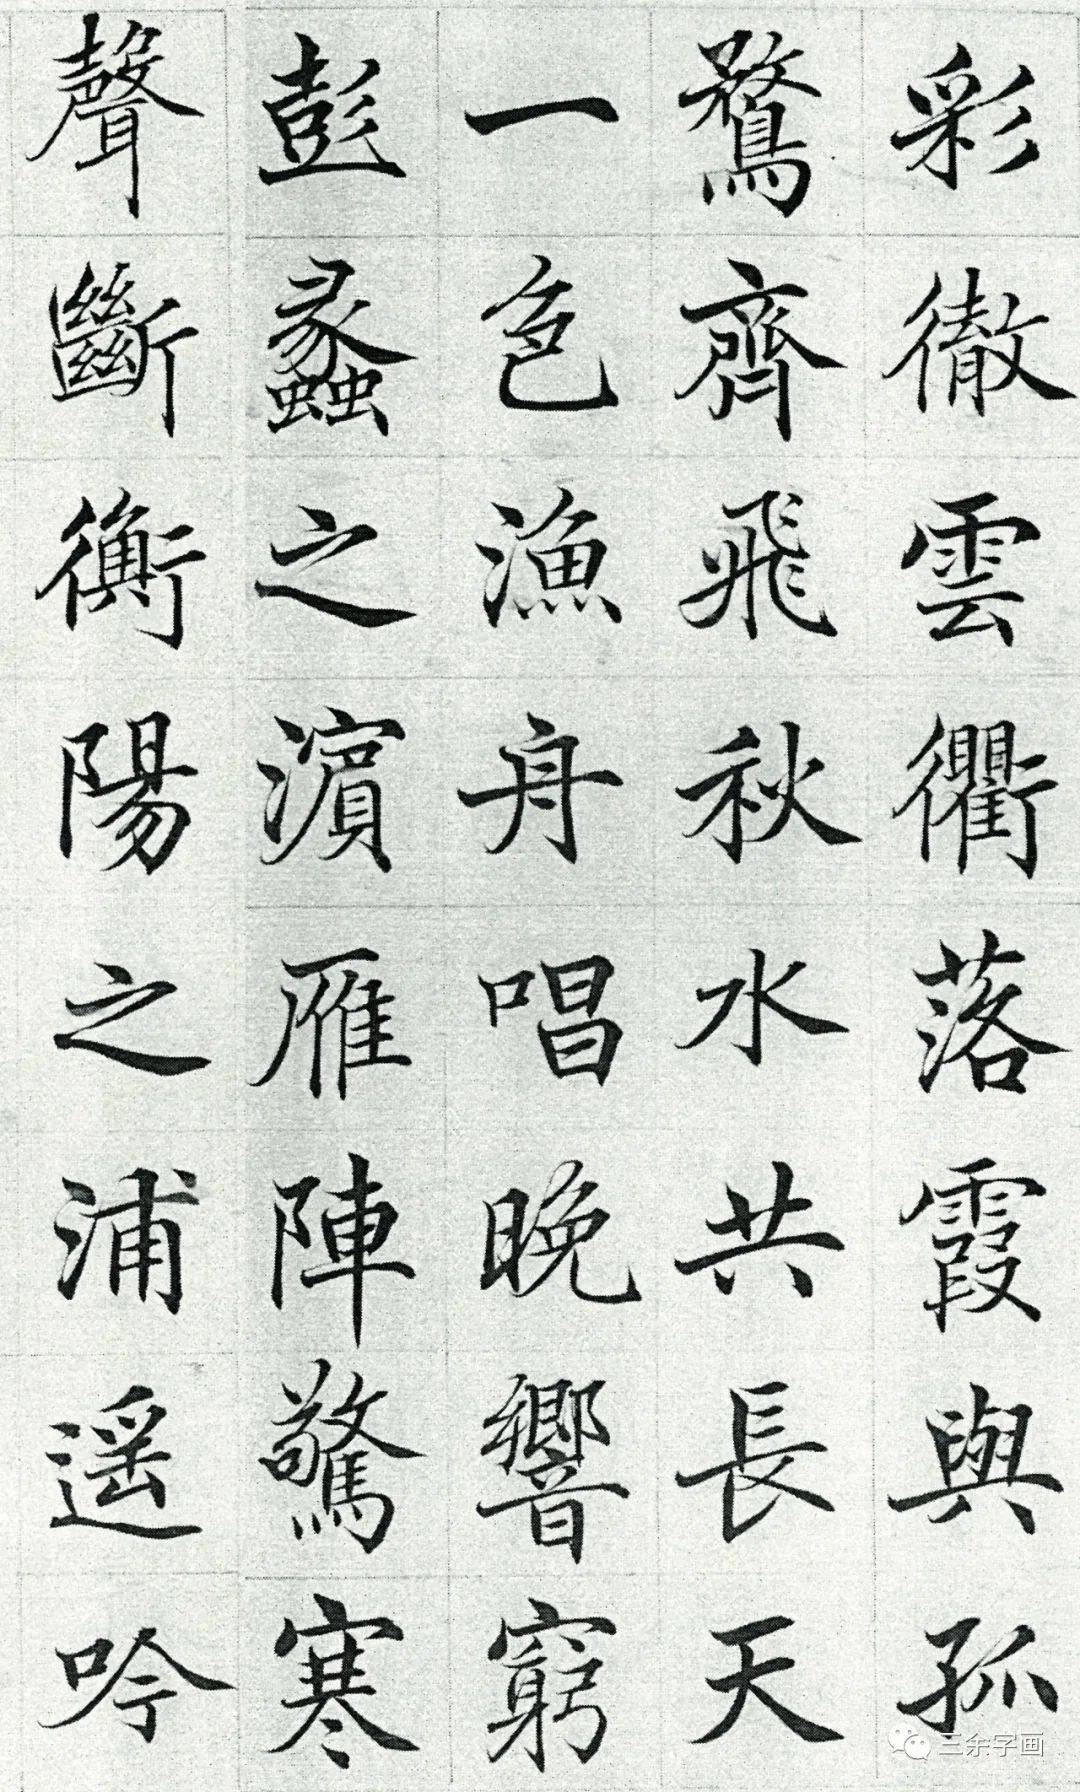 彩徹雲衢落霞與孤
鶩齊飛秋水共長天
一色漁舟唱晚響窮
彭蠡之濵雁陣驚寒
聲斷衡陽之浦遥吟
三余字画